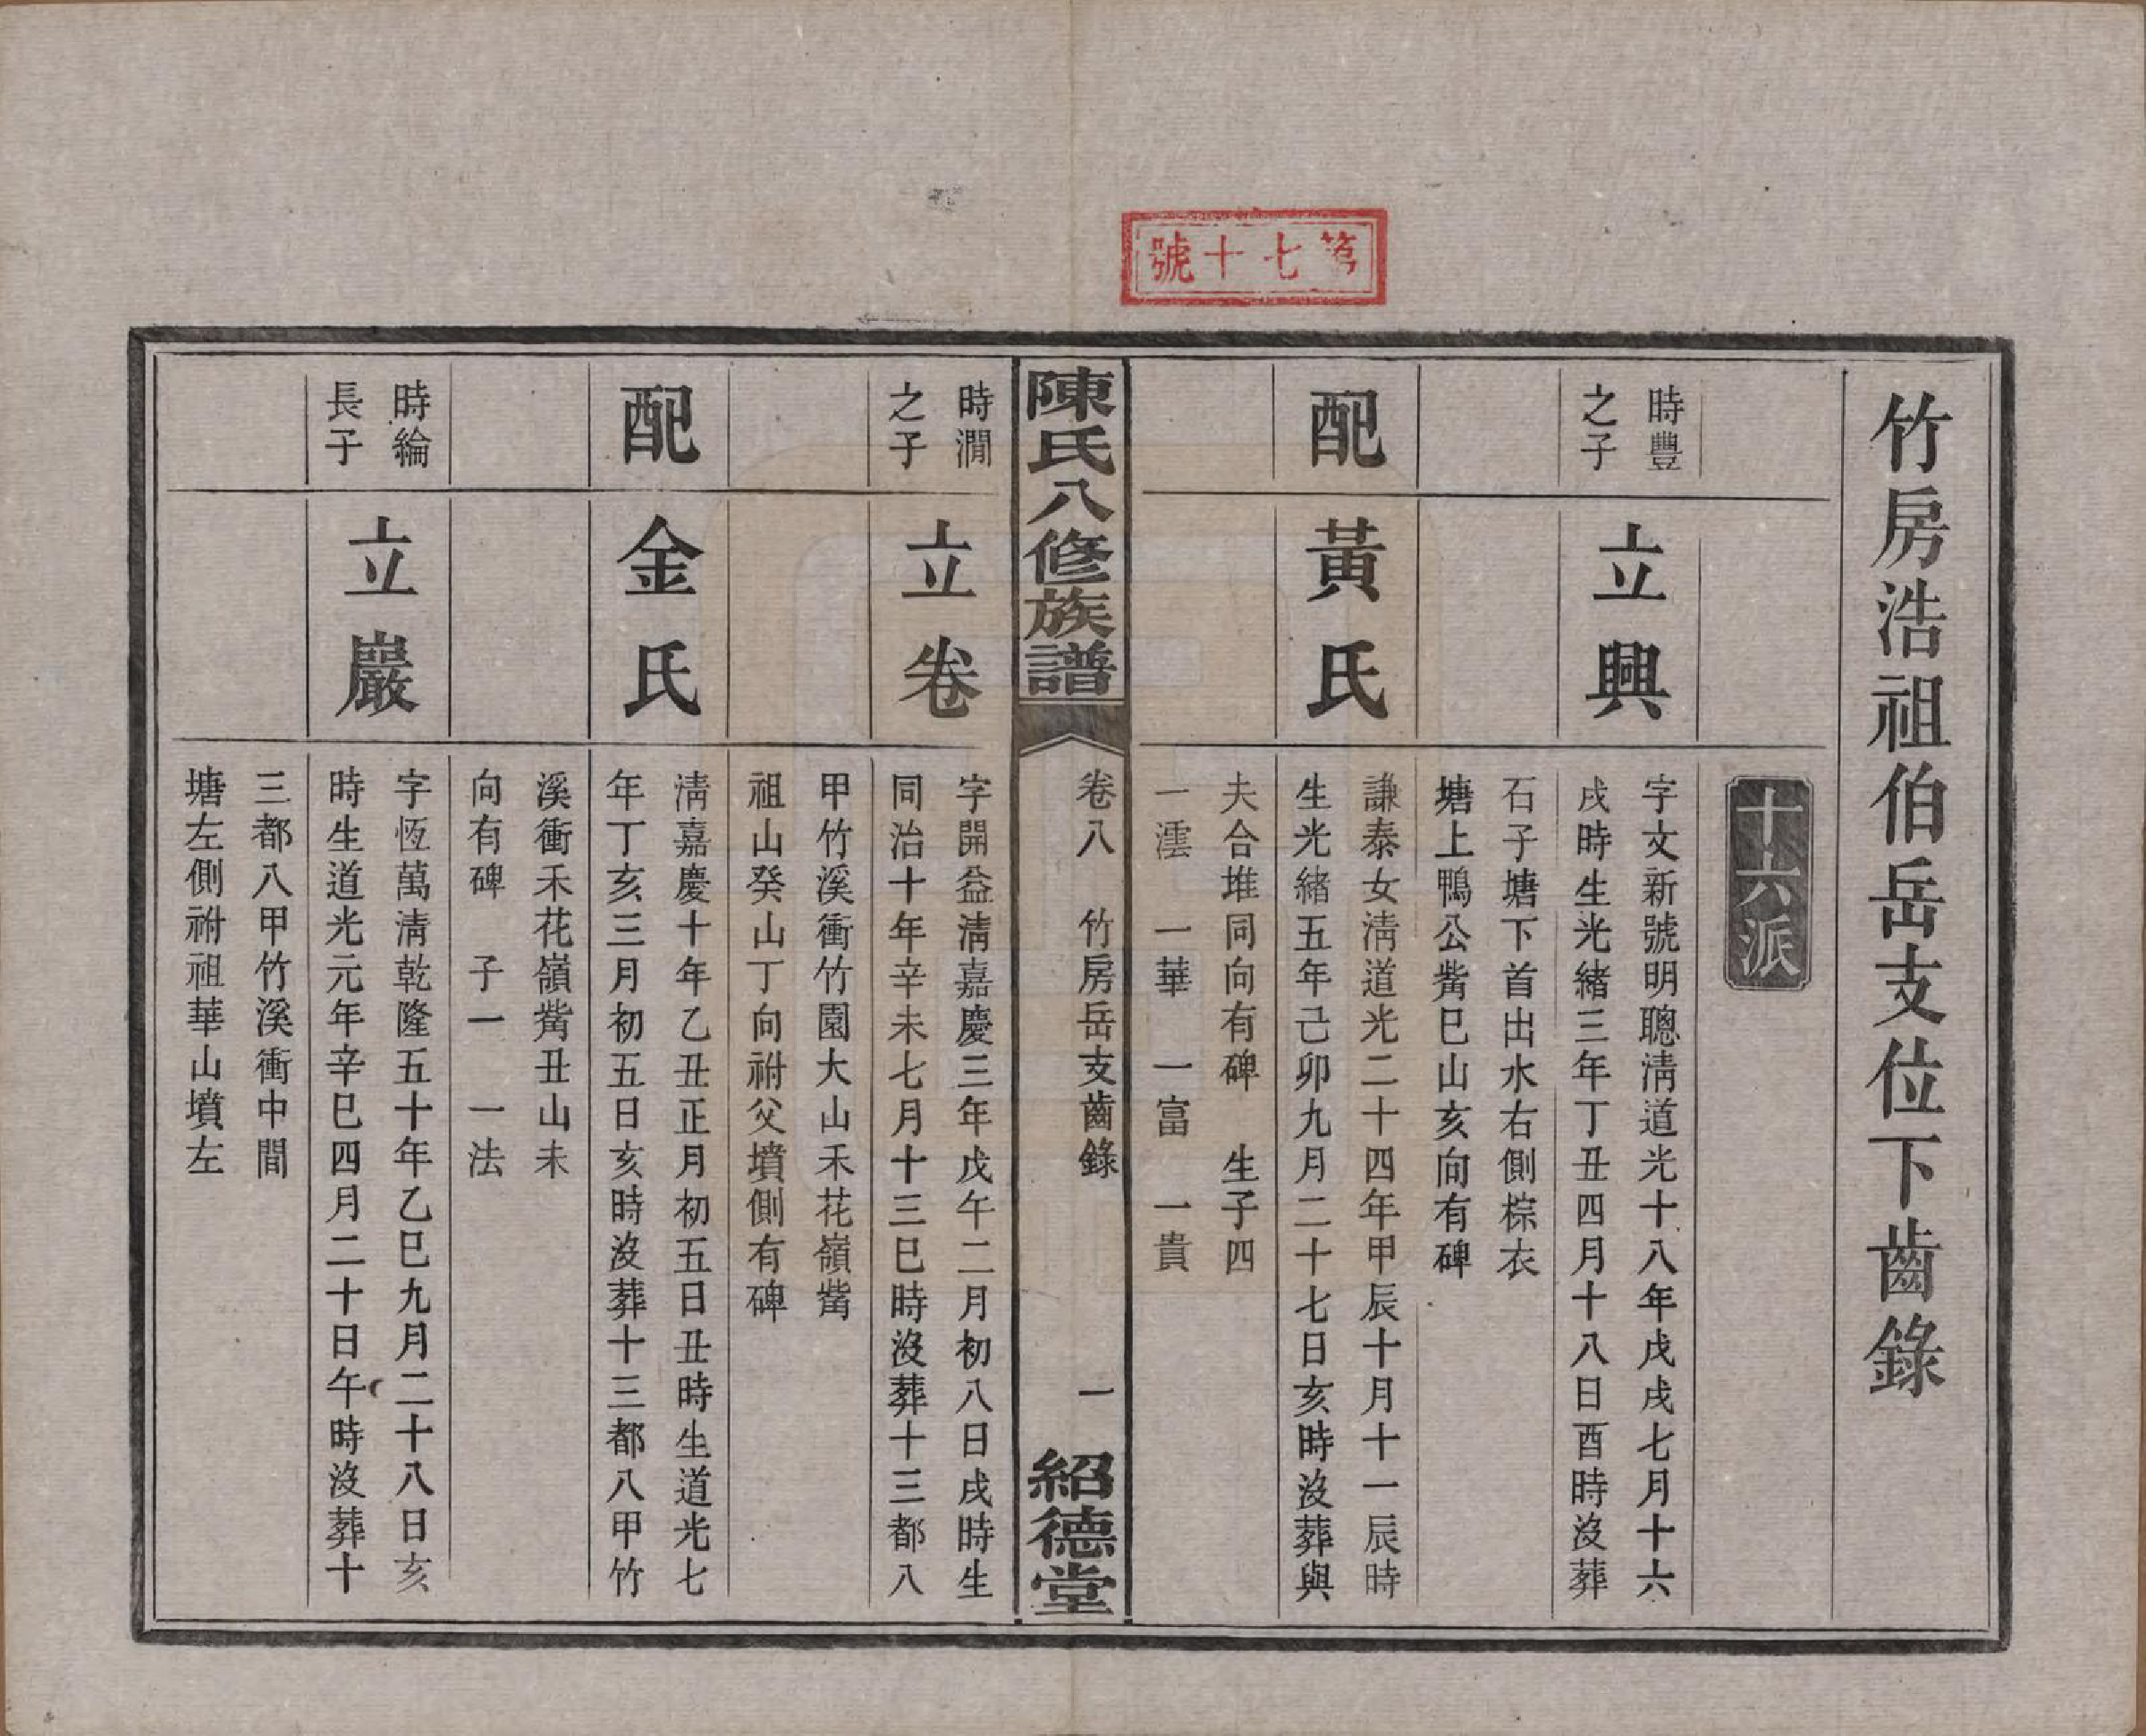 第七十號
竹房浩祖伯岳支位下齒錄
十六派
時豐
之子
立興
字文新號明聰淸道光十八年戊戌七月十六
戌時生光緒三年丁丑四月十八日酉時沒葬
石子塘下首出水右側棕衣
塘上鴨公觜巳山亥向有碑
配
黃氏
謙泰女淸道光二十四年甲辰十月十一辰時
生光緒五年己卯九月二十七日亥時沒葬與
夫合堆同向有碑　生子四
一澐　一華　一富　一貴
陳氏八修族譜
卷八　竹房岳支齒錄
一
紹德堂
時澗
之子
立卷
字開益淸嘉慶三年戊午二月初八日戌時生
同治十年辛未七月十三巳時沒葬十三都八
甲竹溪衝竹園大山禾花嶺觜
祖山癸山丁向祔父墳側有碑
配
金氏
淸嘉慶十年乙丑正月初五日丑時生道光七
年丁亥三月初五日亥時沒葬十三都八甲竹
溪衝禾花嶺觜丑山未
向有碑　子一　一法
時綸
長子
立巖
字恆萬淸乾隆五十年乙巳九月二十八日亥
時生道光元年辛巳四月二十日午時沒葬十
三都八甲竹溪衝中間
塘左側祔祖華山墳左